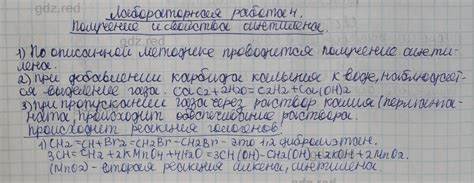 gdz.red
gdz.red
Лабораторная работа 4.
Получение и свойства ацетилена.
1) По описанной методике проводится получение ацети-
лена.
2) при добавлении карбида кальция к воде, наблюдает-
ся выделение газа. CaC2+2H2O=C2H2+Ca(OH)2
3) при пропускании газа через раствор калия (перманга-
ната), происходит обесцвечивание раствора.
Происходит реакция
1) CH2=CH+Br2=CH2Br-CHBr- это 1,2 дибромэтан.
3CH=CH2+2KMnO4+4H2O=3CH(OH)-CH2(OH)+2KOH+2MnO2.
(MnO2)- вторая реакция алкена, ацетилена.
gdz.red